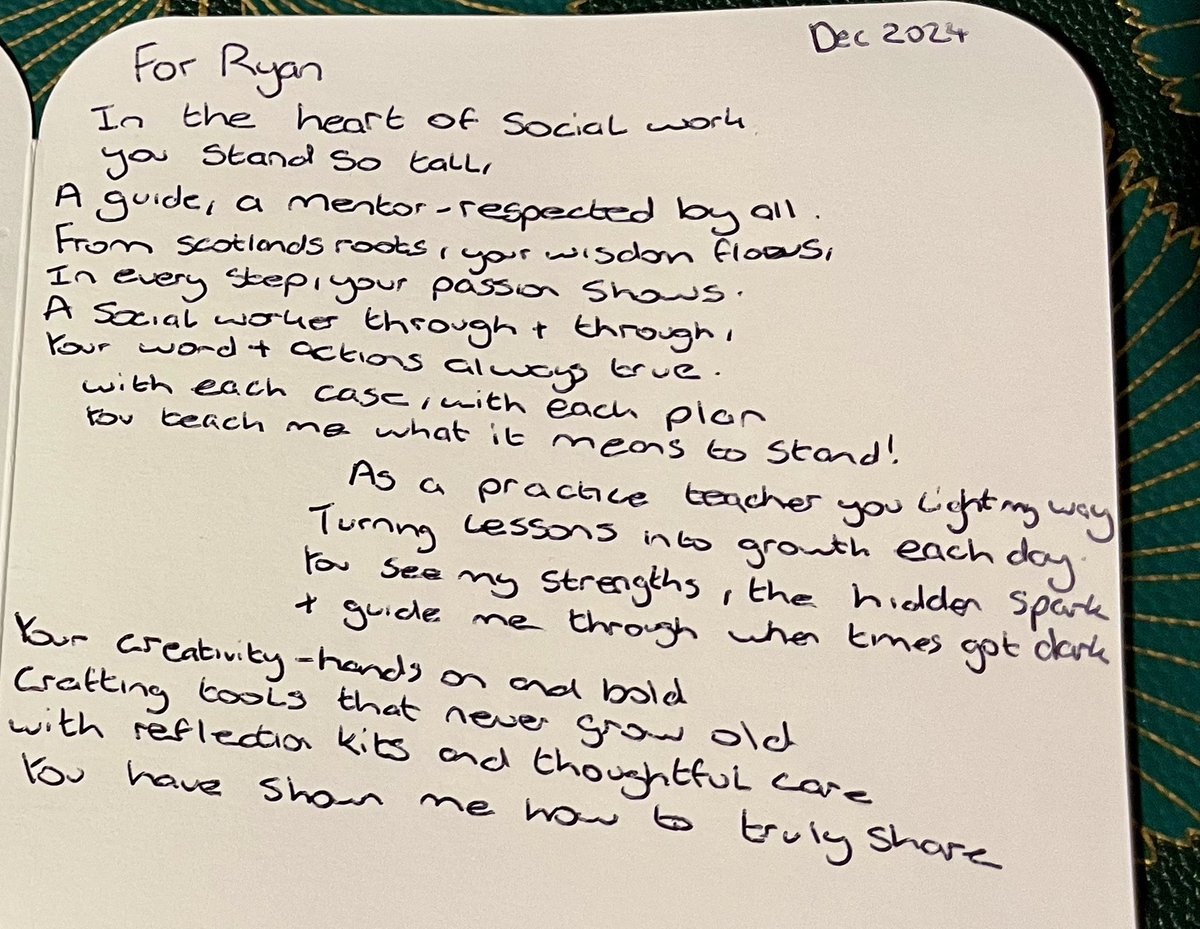 Dec 2024
For Ryan
In the heart of social work
you stand so tall,
A guide, a mentor - respected by all.
From scotlands roots, your wisdom flows,
In every step, your passion shows.
A social worker through + through,
Your word + actions always true.
with each case, with each plan
You teach me what it means to stand!
As a practice teacher you light my way
Turning lessons into growth each day.
You see my strengths, the hidden spark
+ guide me through when times got dark
Your creativity - hands on and bold
Crafting tools that never grow old
with reflection kits and thoughtful care
You have shown me how to truly share